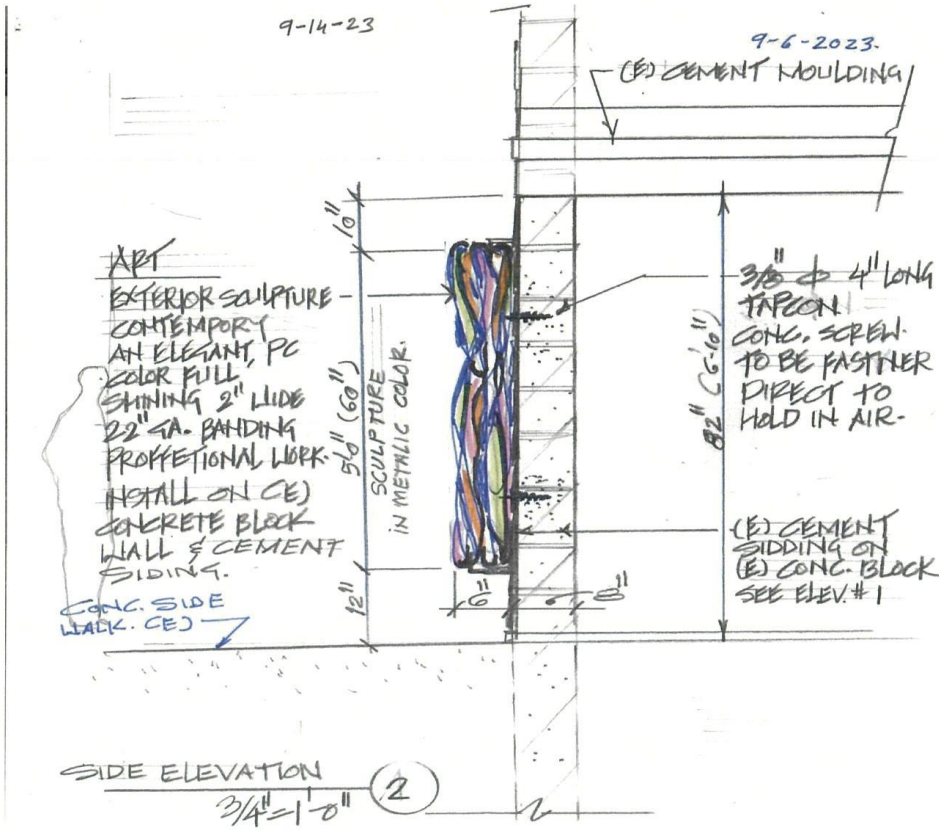 9-14-23
9-6-2023.
(E) CEMENT MOULDING
10"
ART
EXTERIOR SCULPTURE
CONTEMPORY
AN ELEGANT, PC
COLOR FULL,
SHINING 2" WIDE
22" GA. BANDING
PROFFETIONAL WORK.
INSTALL ON (E)
CONCRETE BLOCK
WALL & CEMENT
SIDING.
5'-0" (60")
SCULPTURE
IN METALIC COLOR.
12"
CONC. SIDE
WALK. (E)
6"
8"
82" (6'-10")
3/8" ф 4" LONG
TAPCON
CONC. SCREW.
TO BE FASTNER
DIRECT TO
HOLD IN AIR.
(E) CEMENT
SIDDING ON
(E) CONC. BLOCK
SEE ELEV. #1
SIDE ELEVATION
2
3/4"=1'-0"